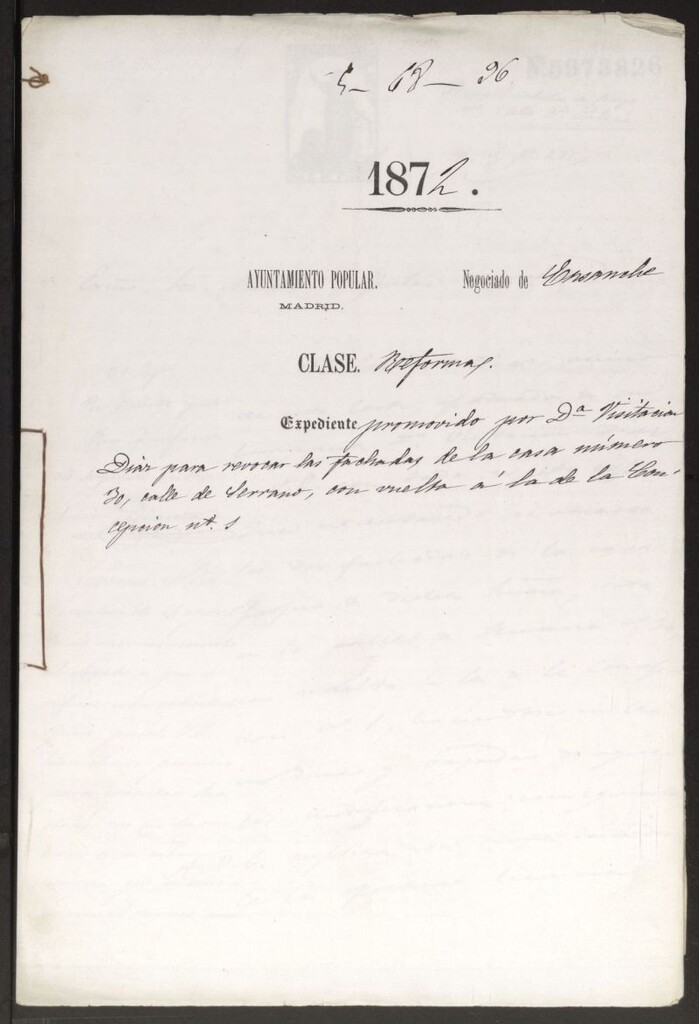 5- 68- 96
1872.
AYUNTAMIENTO POPULAR. Negociado de Ensanche
MADRID.
CLASE. Reformas.
Expediente promovido por Dª Visitacion
Diaz para revocar las fachadas de la casa número
30, calle de Serrano, con vuelta á la de la Con
cepcion nº. 1